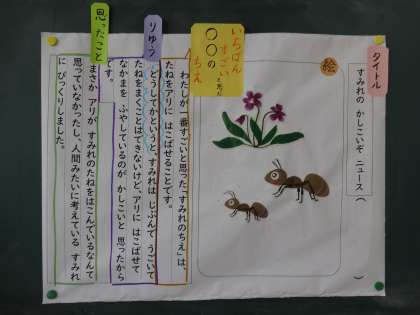 タイトル
すみれの かしこいぞ ニュース（　　）
絵
いちばん
すごいと思った
〇〇の
ちえ
わたしが一番すごいと思った「すみれのちえ」は、
たねをアリに はこばせることです。
りゆう
どうしてかというと、すみれは じぶんで うごいて
たねをまくことはできないけど、アリに はこばせて
なかまを ふやしているのが かしこいと 思ったから
です。
思ったこと
まさか アリが すみれのたねをはこんでいるなんて
思っていなかったし、人間みたいに考えている すみれ
に びっくりしました。